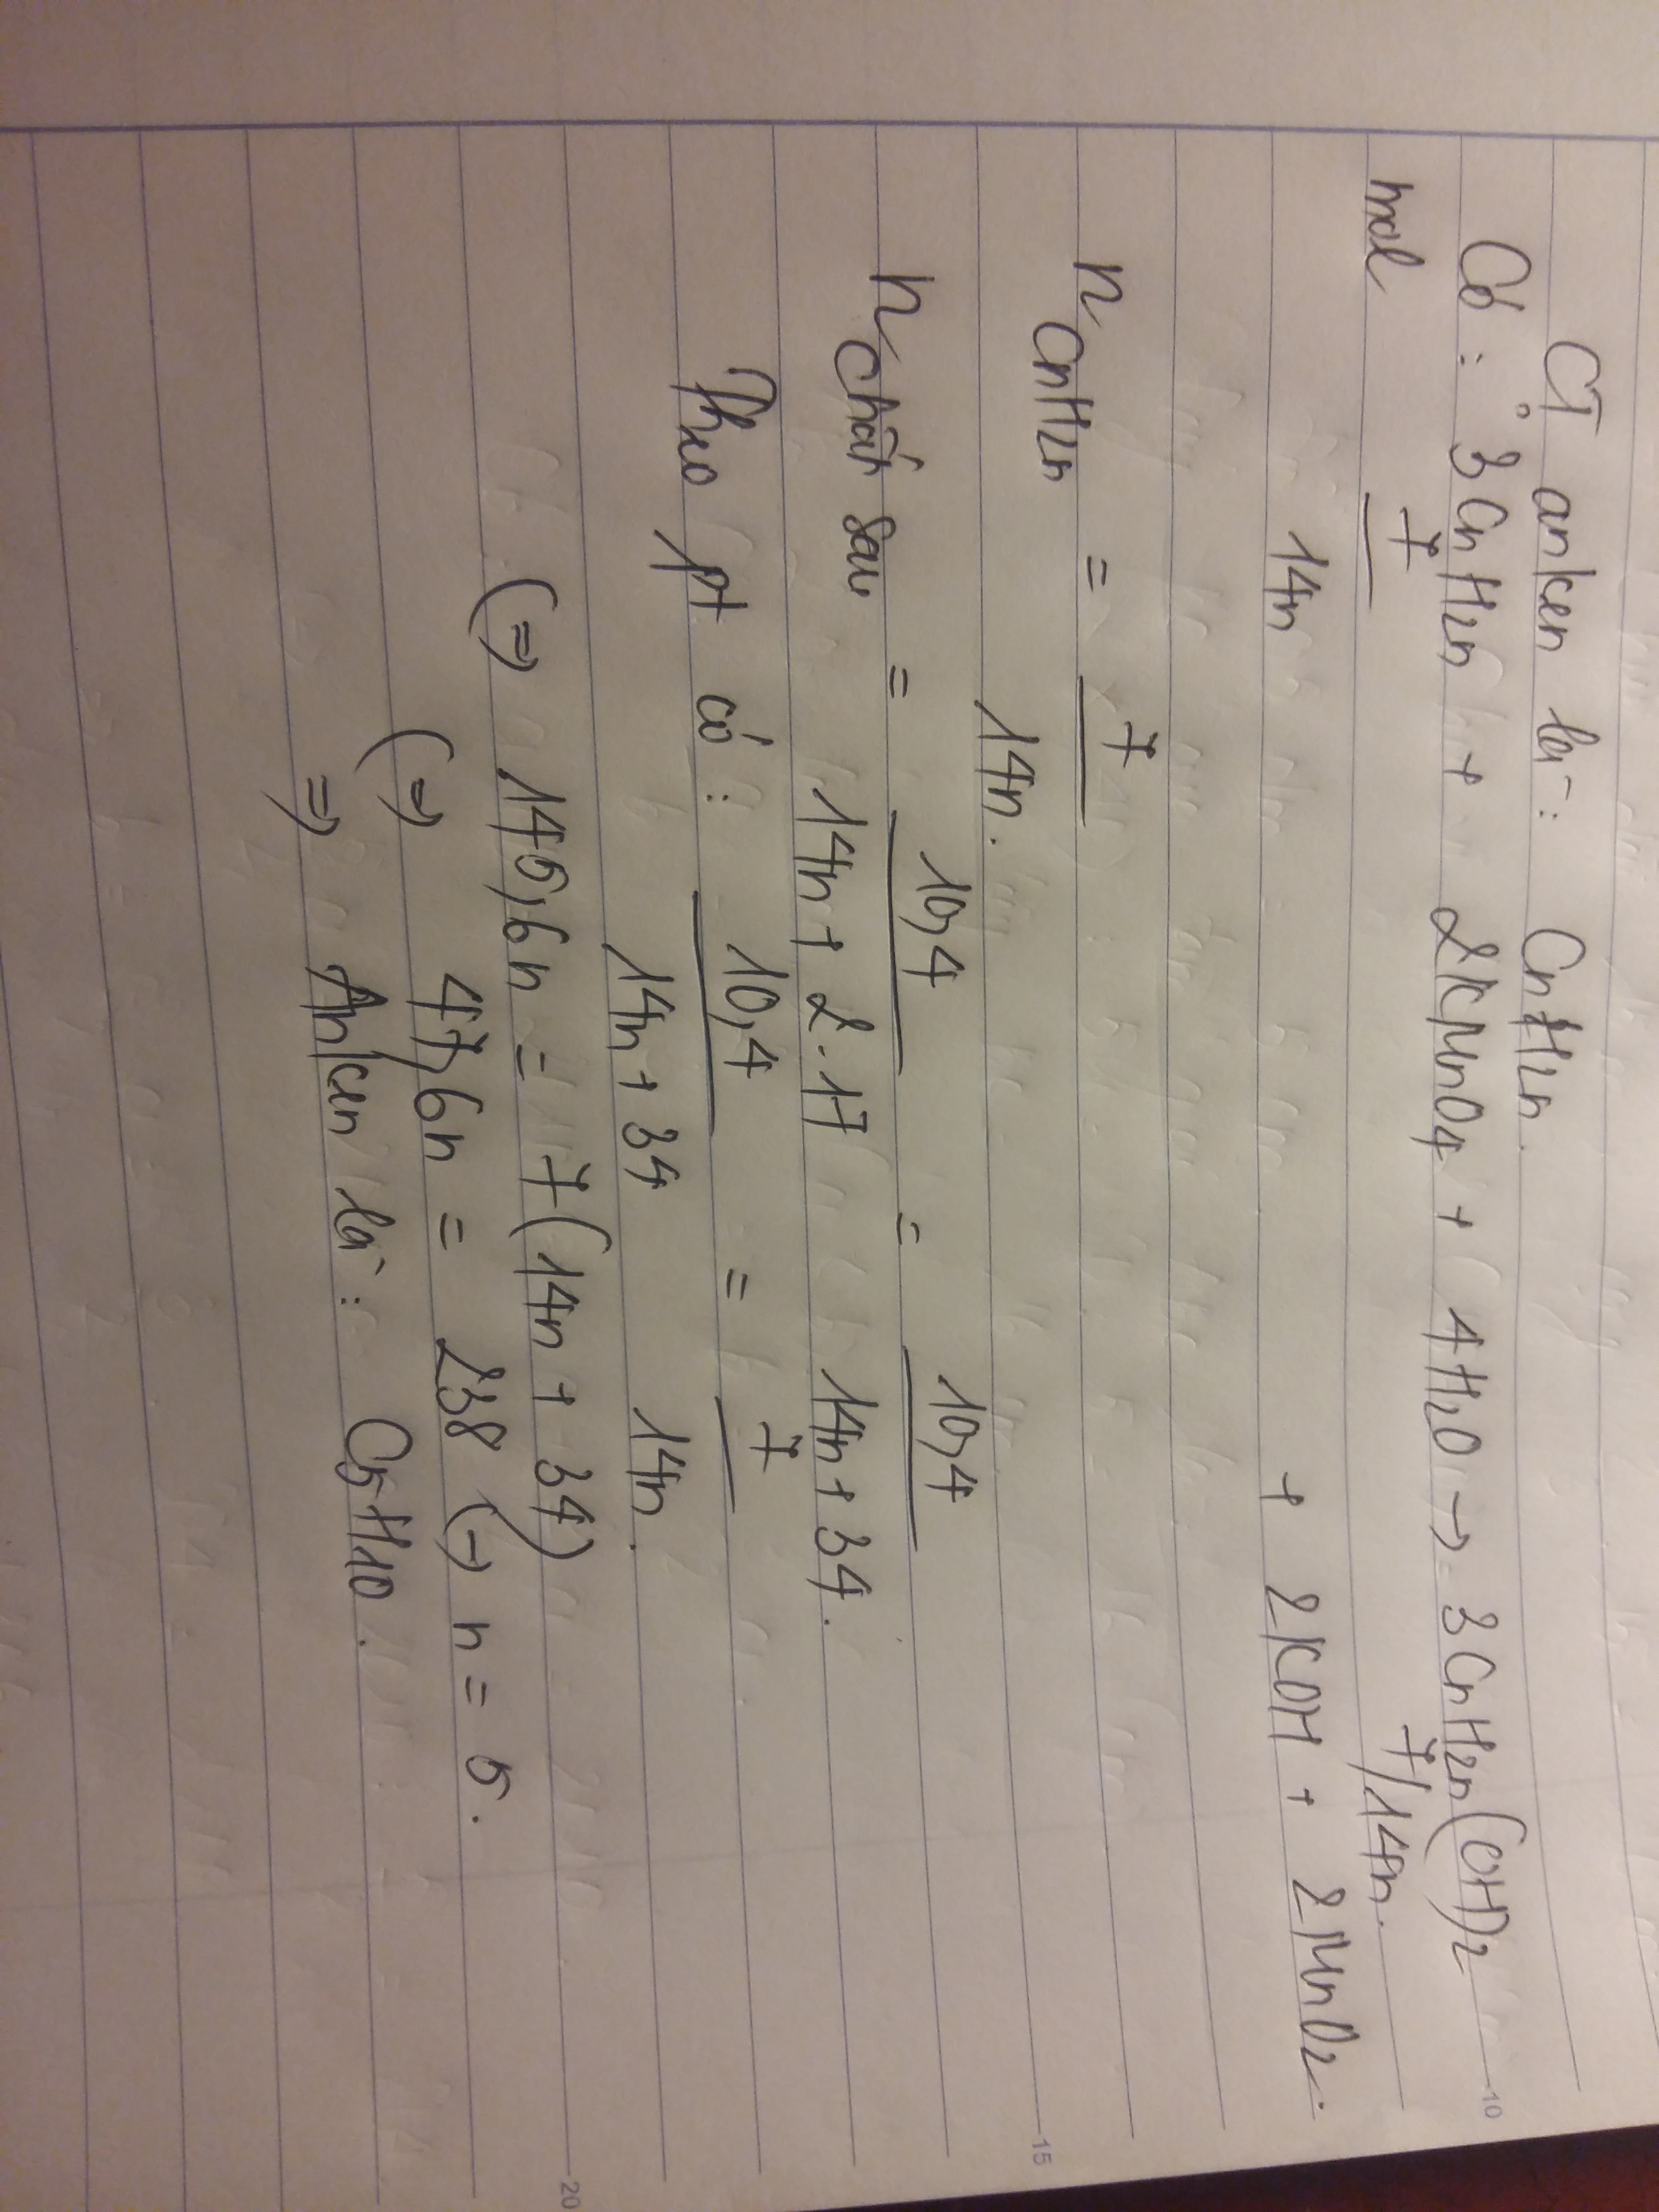 CT anken là: CnH2n.
Có: 3CnH2n + 2KMnO4 + 4H2O → 3CnH2n(OH)2
mol 7/14n 7/14n.
+ 2KOH + 2MnO2.
nCnH2n = 7/14n.
nchất sau = 10,4/14n+2.17 = 10,4/14n+34.
Theo pt có: 10,4/14n+34 = 7/14n.
(=) 145,6n = 7(14n+34)
(=) 47,6n = 238 (=) n = 5.
=) Anken là: C5H10.
10
15
20